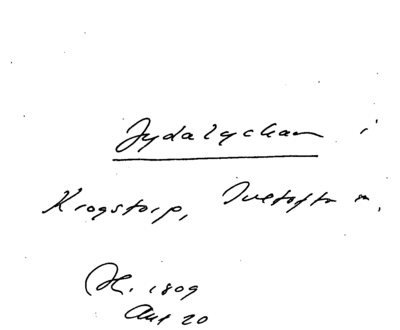 Jydalyckan i
Krogstorp, Ivetofta sn.
H. 1809
Akt 20